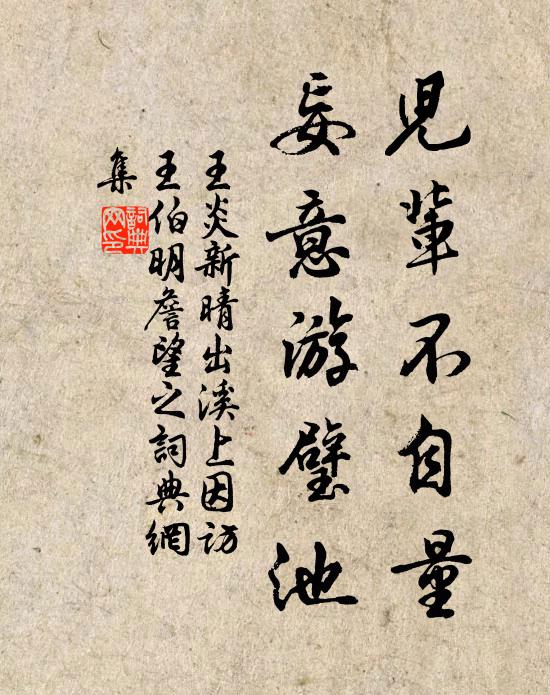 兒輩不自量
妄意游璧池
王炎新晴出溪上因訪
王伯明詹望之詞典網
集
詞典網印